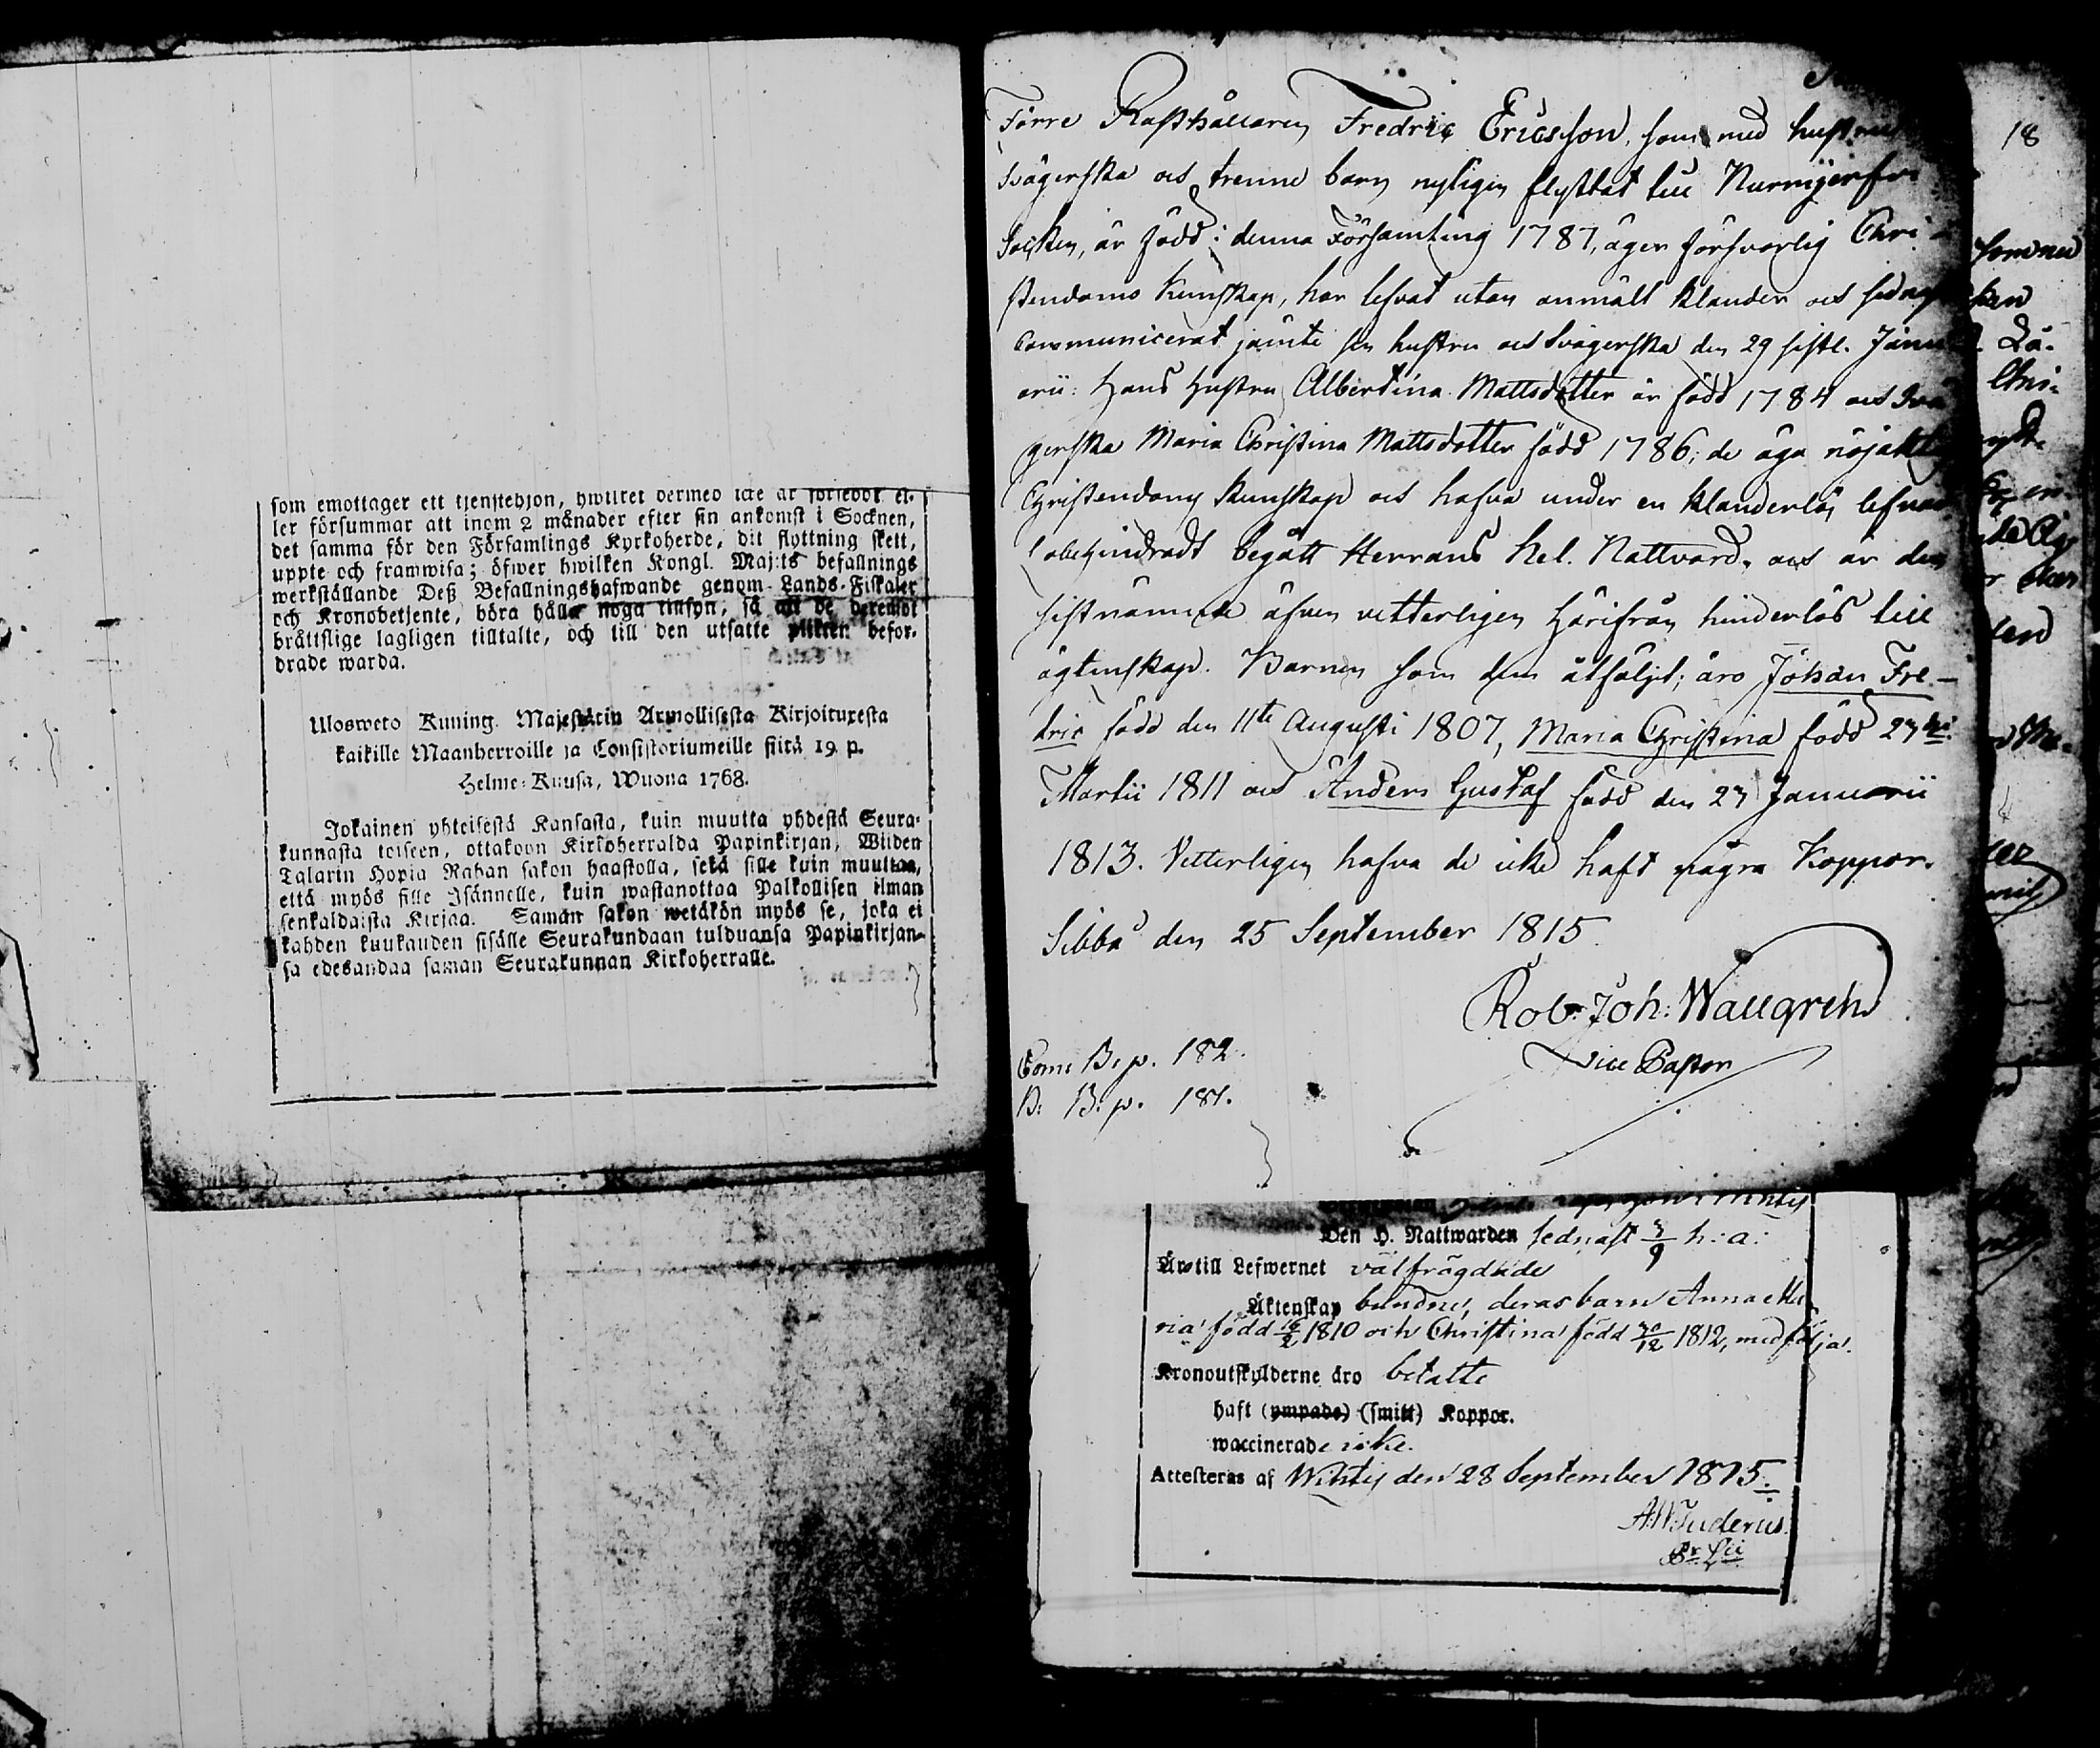 som emottager ett tjenstehjon, hwilket dermed icke är försedor el-
ler försummar att inom 2 månader efter sin ankomst i Socknen,
det samma för den Församlings Kyrkoherde, dit flyttning skett,
uppte och framwisa; öfwer hwilken Kongl. Maj:ts befallnings
werkställande Deß Befallningshafwande genom Lands-Fiskaler
och Kronobetjente, böra hålla noga tillsyn, så att de deremot
bråttslige lagligen tilltalte, och till den utsatte plikten befor-
drade warda.
Ulosweto Kuning. Majestätin Armollisesta Kirjoituxesta
kaikille Maanherroille ja Consistoriumeille siitä 19. p.
Helme-Kuusa, Wuona 1768.
Jokainen yhteisestä Kansasta, kuin muutta yhdestä Seura-
kunnasta toiseen, ottakoon Kirkoherralda Papinkirjan, Wiiden
Talarin Hopia Rahan sakon haastolla, sekä sille kuin muuttaa,
että myös sille Isännelle, kuin wastanottaa Palkollisen ilman
senkaldaista Kirjaa. Saman sakon wetäkön myös se, joka ei
kahden kuukauden sisälle Seurakundaan tulduansa Papinkirjan-
sa edesandaa saman Seurakunnan Kirkoherralle.
Förre Rusthållaren Fredric Ericsson, som med hustru
Svägerska och trenne barn nyligen flyttat till Nurmijerfvi
Socken, är född i denna Församling 1787, äger försvarlig Chri-
stendoms Kunskap, har lefvat utan anmält klander och sednast
Communicerat jämte sin hustru och Svägerska den 29 sistl. Janu-
arii: Hans Hustru Albertina Mattsdotter är född 1784 och Svä-
gerska Maria Christina Mattsdotter född 1786; de äga nöjaktig
Christendoms kunskap och hafva under en klanderlös lefnad
obehindradt begått Herrans Hel. Nattvard, och är den
sistnämnde äfven vetterligen härifrån hinderlös till
ägtenskap. Barnen som dem åtföljt, äro Johan Fre-
dric född den 11te Augusti 1807, Maria Christina född 23
Martii 1811 och Anders Gustaf född den 23 Januarii
1813. Vetterligen hafva de icke haft några Koppor.
Sibbo den 25 September 1815
Rob: Joh: Wallgren
Vice Pastor
Com: B. p. 182.
B: B: p. 181.
Den H. Nattwarden sednast 3/9 h: a:
Äro till Lefwernet välfrägdade
Äktenskap bundne, deras barn Anna Ma-
ria född 16/2 1810 och Christina född 30/12 1812, medfölja.
Kronoutskylderne äro betalte
haft (ympade) (smitt) Koppor.
waccinerade icke.
Attesteras af Wihtis den 28 September 1815.
18